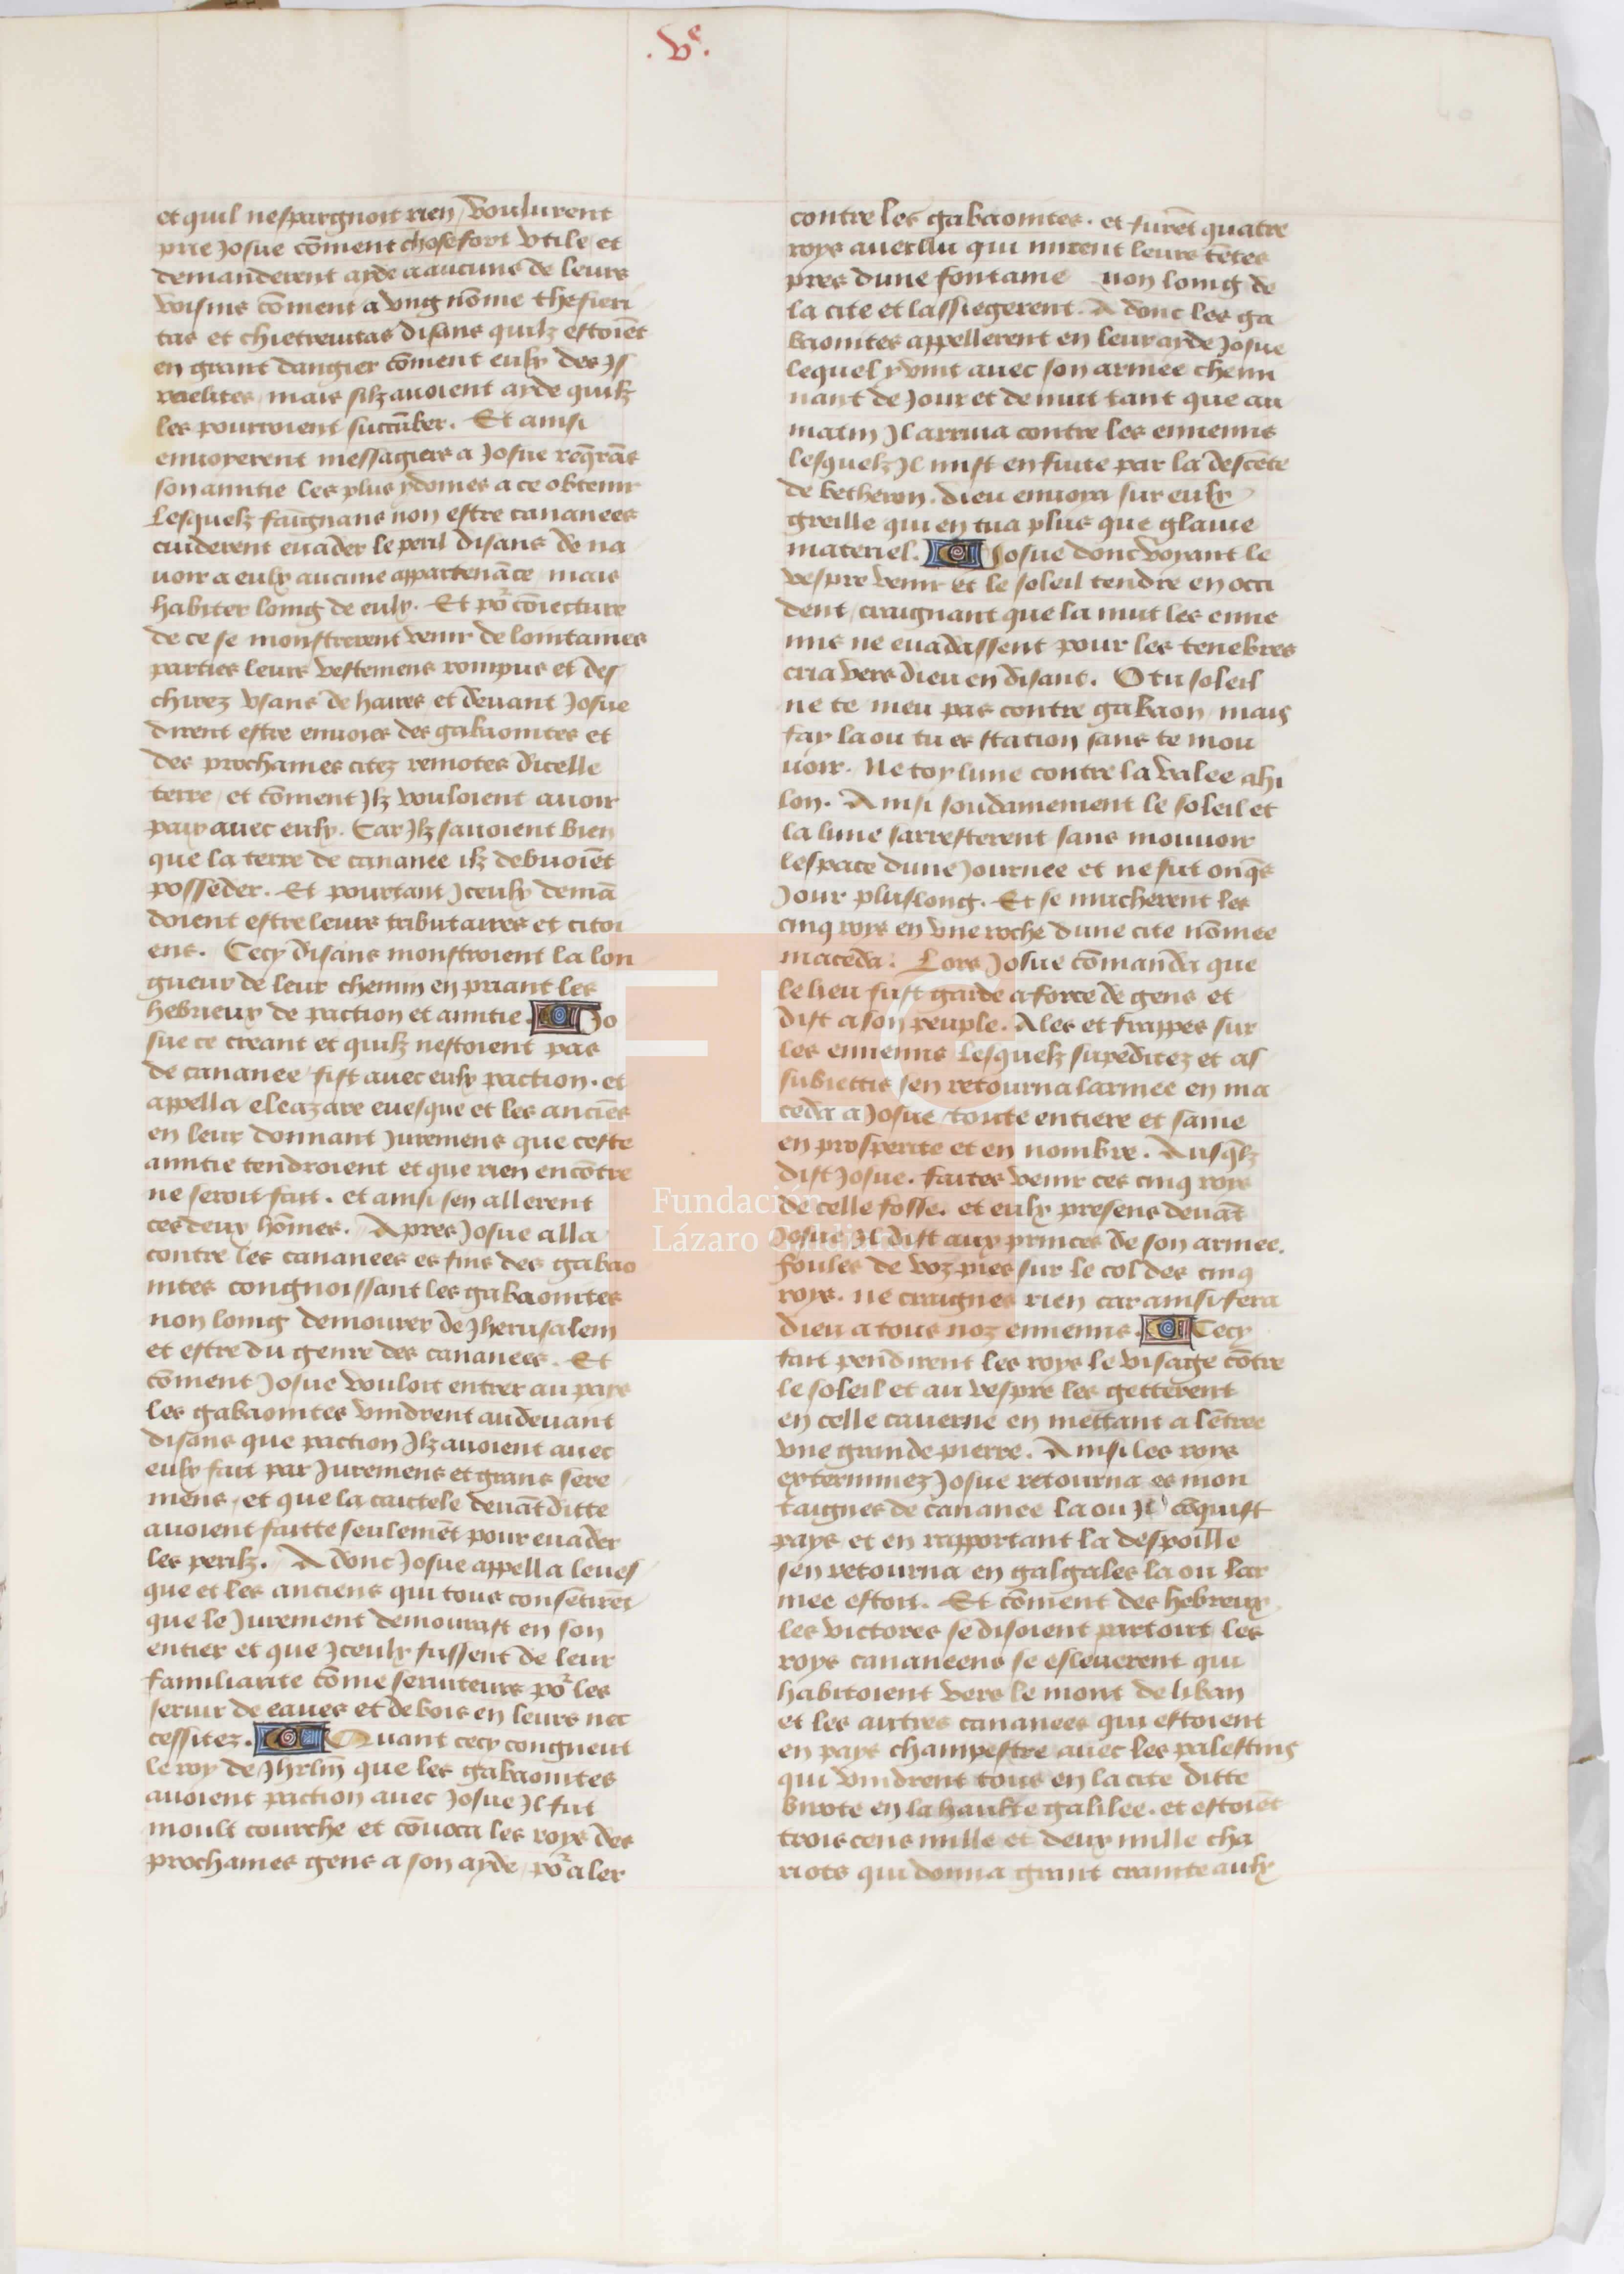 .Ve.
et quil nespargnoit rien / voulurent
prie Josue cõment chose fort vtile / et
demanderent ayde a aucuns de leurs
voisins cõment a vng nõme thesieri
tas et chietreuitas disans quilz estoiẽt
en grant dangier cõment eulx des Js
raelites / mais silz auoient ayde quilz
les pourroient succũber. Et ainsi
enuoyerent messagiers a Josue reqrãs
son amitie les plus ydoines a ce obtenir
Lesquelz faignans non estre cananees
cuiderent euader le peril disans de na
uoir a eulx aucune appartenãce / mais
habiter loing de eulx. Et por cõiecture
de ce se monstrerent venir de lointaines
parties leurs vestemens rompus et des
chirez vsans de haires / et deuant Josue
dirent estre enuoies des gabaonites et
des prochaines citez remotes dicelle
terre / et cõment Jlz vouloient auoir
paix auec eulx. Car Jlz sauoient bien
que la terre de cananee ilz debuoiẽt
posseder. Et pourtant Jceulx demã
doient estre leurs tributaires et citoi
ens. Cecy disans monstroient la lon
gueur de leur chemin en priant les
hebrieux de paction et amitie. Jo
sue ce creant et quilz nestoient pas
de cananee / fist auec eulx paction. et
appella eleazare euesque et les anciẽs
en leur donnant Juremens que ceste
amitie tendroient et que rien encõtre
ne seroit fait. et ainsi sen allerent
ces deux hõmes. Apres Josue alla
contre les cananees es fins des gabao
nites congnoissant les gabaonites
non loing demourer de Jherusalem
et estre du genre des cananees. Et
cõment Josue vouloit entrer au pays
les gabaonites vindrent audeuant
disans que paction Jlz auoient auec
eulx fait par Juremens et grans sere
mens / et que la cautele deuãt ditte
auoient faitte seulemẽt pour euader
les perilz. A donc Josue appella leues
que et les anciens qui tous consẽtirẽt
que le Jurement demourast en son
entier et que Jceulx fussent de leur
familiarite cõme seruiteurs por les
seruir de eaues et de bois en leurs nec
cessitez. Quant cecy congneut
le roy de Jhrlm̃ que les gabaonites
auoient paction auec Josue Jl fut
moult courche et cõuoca les roys des
prochaines gens a son ayde / por aler
contre les gabaonites. et furẽt quatre
roys auec luy qui mirent leurs tẽtes
pres dune fontaine non loing de
la cite et lassiegerent. A donc les ga
baonites appellerent en leur ayde Josue
lequel y vint auec son armee chemi
nant de Jour et de nuit tant que au
matin Jl arriua contre les ennemis
lesquelz Jl mist en fuite par la descẽte
de betheron. dieu enuoya sur eulx
greille qui en tua plus que glaiue
materiel. Josue donc voyant le
vespre venir et le soleil tendre en occi
dent / craignant que la nuit les enne
mis ne euadassent pour les tenebres
cria vers dieu en disant. O tu soleil
ne te meu pas contre gabaon / mais
fay la ou tu es station sans te mou
uoir. Ne toy lune contre la valee ahi
lon. Ainsi soudainement le soleil et
la lune sarresterent sans mouuoir
lespace dune Journee et ne fut onq̃s
Jour plus long. Et se mucherent les
cinq roys en vne roche dune cite nõmee
maceda. Lors Josue cõmanda que
le lieu fust garde a force de gens et
dist a son peuple. Ales et frappes sur
les ennemis lesquelz supeditez et as
subiettis sen retourna larmee en ma
ceda a Josue / toute entiere et saine
en prosperite et en nombre. Ausq̃lz
dist Josue. faites venir ces cinq roys
de celle fosse. et eulx presens deuãt
Josue Jl dist aux princes de son armee.
foules de voz pies sur le col des cinq
roys. ne craignes rien car ainsi fera
dieu a tous noz ennemis. Cecy
fait pendirent les roys le visage cõtre
le soleil et au vespre les getterent
en celle cauerne en mettant a lẽtree
vne grande pierre. Ainsi les roys
exterminez Josue retourna es mon
taignes de cananee la ou Jl cõquist
pays et en rapportant la despoille
sen retourna en galgales la ou lar
mee estoit. Et cõment des hebreux
les victores se disoient partout les
roys cananeens se esleuerent qui
habitoient vers le mont de liban
et les autres cananees qui estoient
en pays champestre auec les palestins
qui vindrent tous en la cite ditte
birote en la haulte galilee. et estoiẽt
trois cens mille et deux mille cha
riots qui donna grant crainte aulx
Fundación
Lázaro Galdiano
FLG